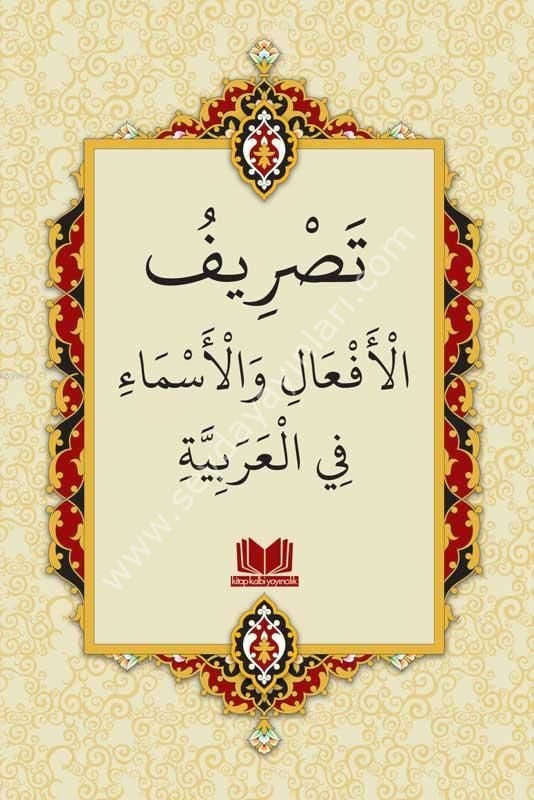 تَصْرِيفُ
الْأَفْعَالِ وَالْأَسْمَاءِ
فِي الْعَرَبِيَّةِ
kitap kalbi yayıncılık
www.seydayayinlari.com